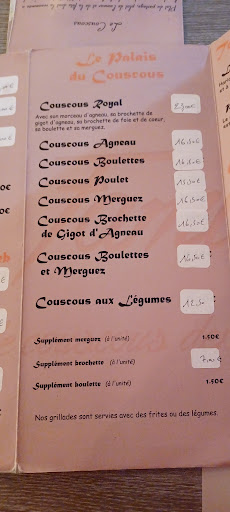 Le Couscous
Le Palais
du Couscous
Couscous Royal
Avec son morceau d'agneau, sa brochette de
gigot d'agneau, sa brochette de foie et de cœur,
sa boulette et sa merguez.
Couscous Agneau 16.50€
Couscous Boulettes 16.50€
Couscous Poulet 15.50€
Couscous Merguez 16.50€
Couscous Brochette
de Gigot d'Agneau 16.50€
Couscous Boulettes
et Merguez
Couscous aux Légumes 12.50
Supplément merguez (à l'unité) 1.50€
Supplément brochette (à l'unité)
Supplément boulette (à l'unité) 1.50€
Nos grillades sont servies avec des frites ou des légumes.